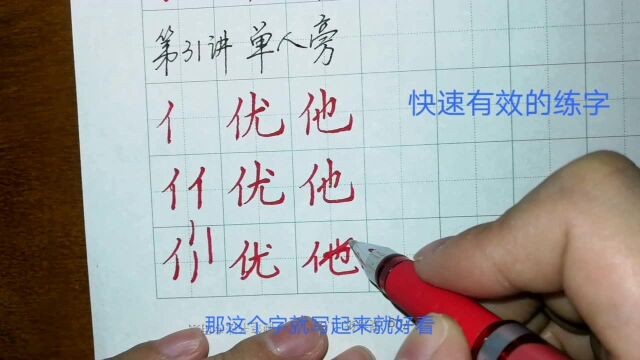 第31讲 单人旁
快速有效的练字
亻 优 他
亻亻 优 他
亻 优 他
那这个字就写起来就好看